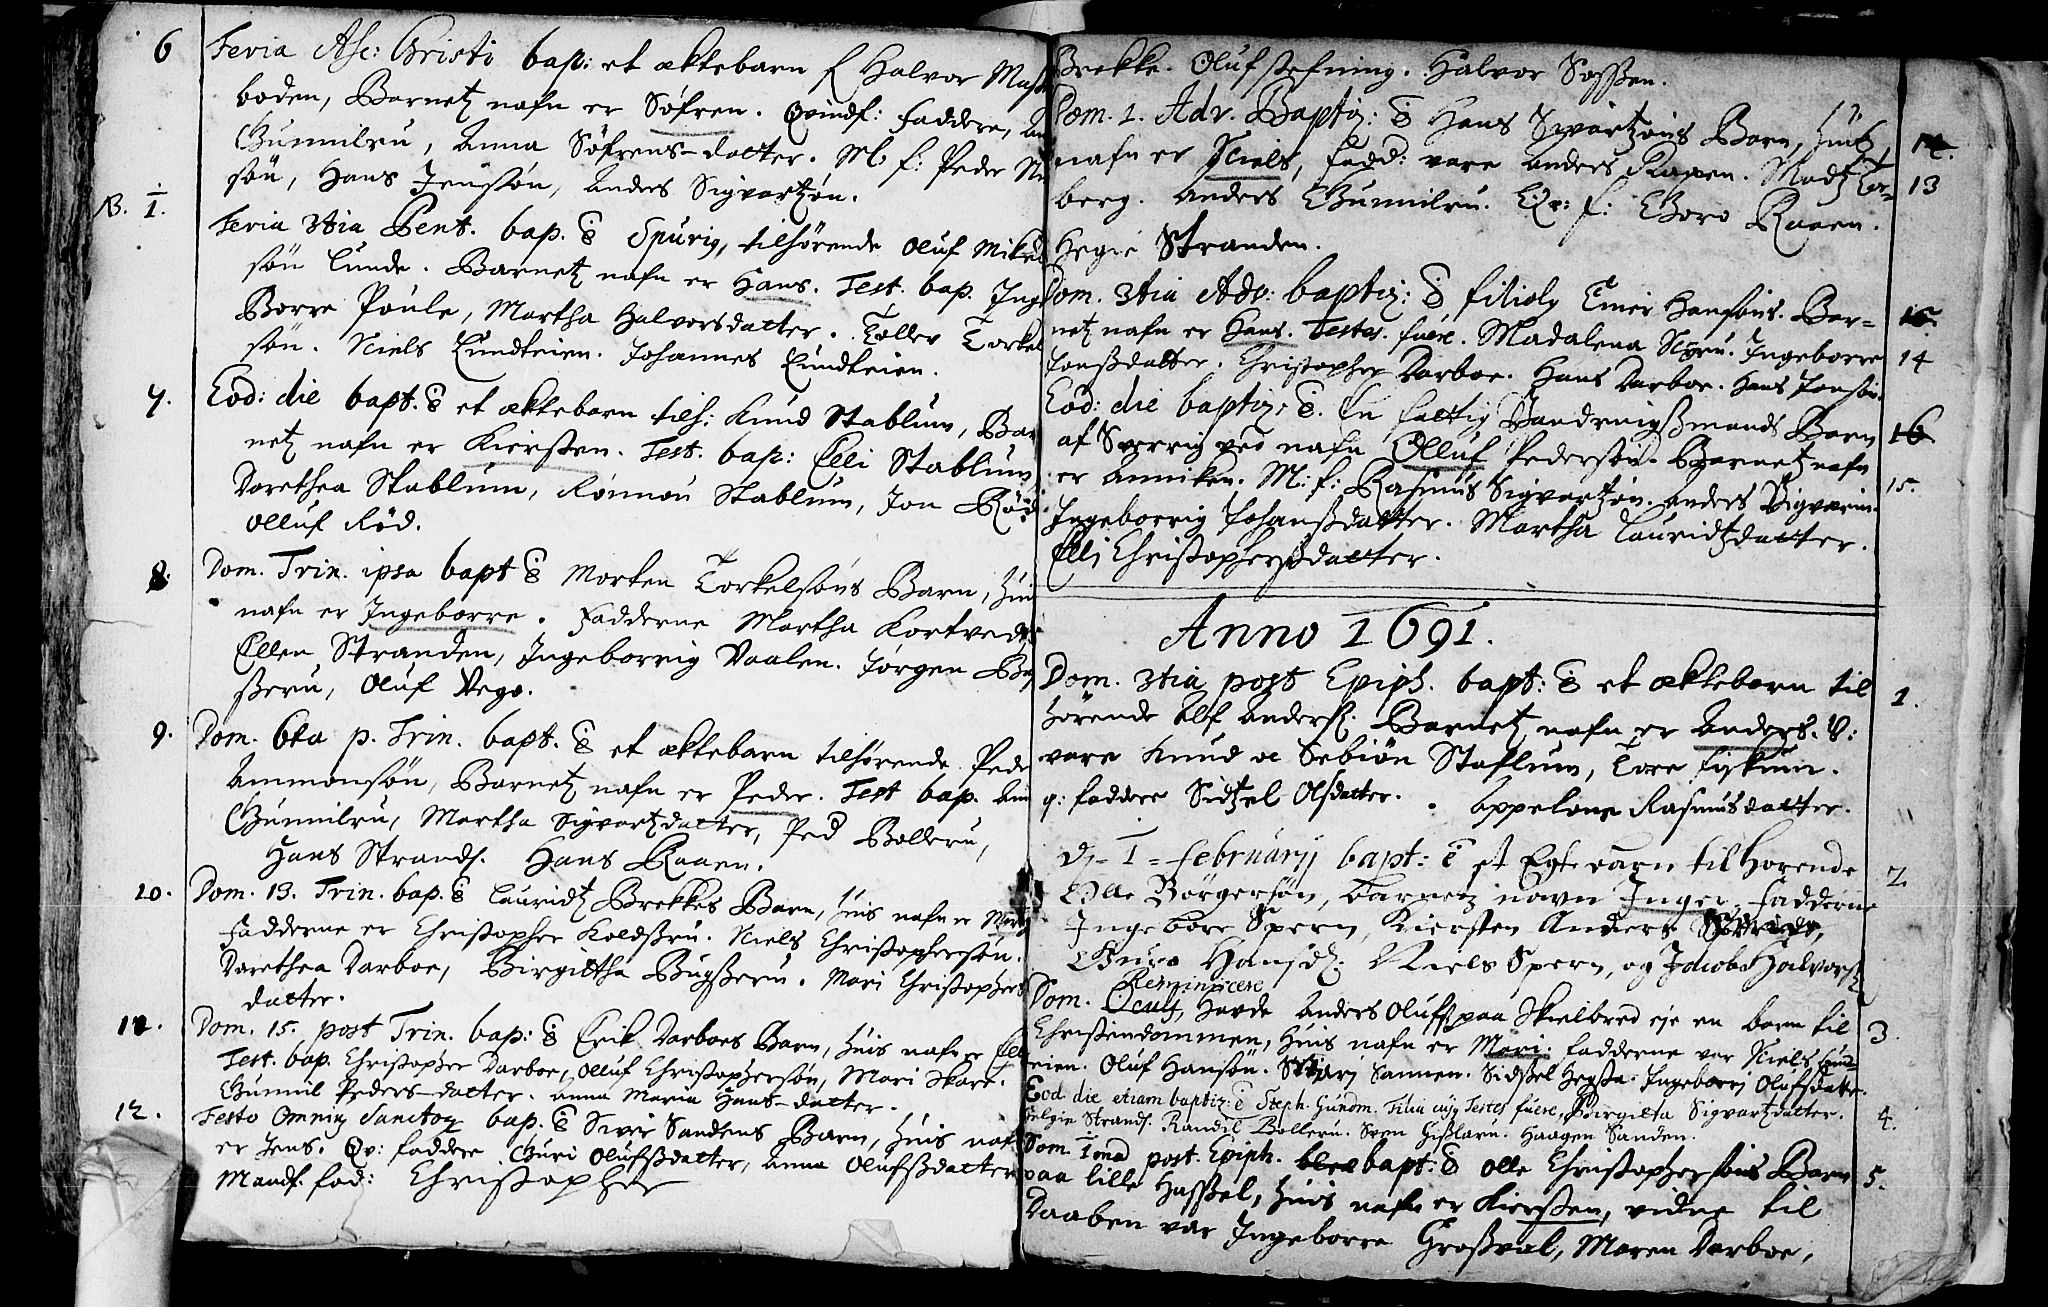 6
Feria Asc: Christi bap: et æktebarn f Halvor
boden, Barnetz nafn er Söfren. Qvindf: Faddere,
Gunnilru, Anna Söfrens-datter. M. f: Peder
sön, Hans Jenssön, Anders Sigvartzön.
B. 1.
Feria 3tia Pent. bap. Spurig, tilhörende Oluf
sön Lunde. Barnetz nafn er Hans. Test. bap.
Borre Poüls, Martha Halvorsdatter. Tollev
sön. Niels Lundteien. Johannes Lundteien.
7.
Eod: die bapt. et æktebarn tilh: Knud Stablum, Bar
netz nafn er Kiersten. Test. bap: Elli Stablum
Dorethea Stablum, Rönnou Stablum, Jon Röd
Olluf Röd.
8.
Dom. Trin. ipsa bapt Morten Torkelsöns Barn,
nafn er Ingeborre. Fadderne Martha Kortved
Ellen Stranden, Ingeborrig Vaalen. Jörgen
sseru, Oluf Vego.
9.
Dom. 6ta p. Trin. bapt. et æktebarn tilhörende Peder
Ammonsön, Barnetz nafn er Peder. Test bap.
Gunnilru, Martha Sigvartzdatter, Ped Bolleru,
Hans Strands. Hans Raaen.
10.
Dom. 13. Trin. bap. Lauridtz Brekkes Barn, huis nafn er
Fadderne er Christopher Koldssru. Niels Christophersön.
Dorethea Darboe, Birgittha Bugsseru. Mari Christophers
datter.
11.
Dom. 15. post Trin. bap: Erik Darboes Barn, huis nafn er
Test. bap. Christopher Darboe, Olluf Christophersön, Mari Skare.
Gunnil Peders-datter. Anna Maria Hans-datter.
12.
Festo Omniu Sanctor bap. Siver Sandens Barn, huis nafn
er Jens. Qv: faddere Guri Olufssdatter, Anna Olufssdatter
Mandf. fad: Christopher
Brekke. Oluf Stefning. Halvor Sossen.
Dom. 1. Adv. Baptiz: Hans Sivartzöns Barn, huis
nafn er Niels, fadd: vare Anders Raaen. Madtz
13
berg. Anders Gunnilru. Qv: f: Goro Raaen.
Hegie Stranden.
Dom. 3tia Adv: baptiz: filiolg Einer Hansöns. Bar=
netz nafn er Hans. Testes fuére. Madalena Ingeborre
14
Jonssdatter. Christopher Darboe. Hans Darboe. Hans Jonsön.
Eod: die baptiz: En fattig Vandringssmands Barn
16
af Sverrig ved nafn Olluf Pedersön. Barnetz nafn
er Anniken. M: f: Rasmus Sigvartzön. Anders
15.
Ingeborrig Johanssdatter. Martha Lauridtzdatter.
Elli Christopherssdatter.
Anno 1691.
Dom. 3tia post Epiph. bapt: et æktebarn til
1.
hörende Alf Anders. Barnetz nafn er Anders. V:
vare Knud oc Sebiön Staflum, Tore
q: faddere Sidtzel Olsdatter. Appelone Rasmusdatter.
D. 1 = februarij bapt: et Egtebarn tilhorende
2
Olle Börgersön, barnetz nåvn Inger, Fadderne
Ingebore Spern, Kiersten Anders
Guro Hansd: Niels Spern, og Jacob Halvors
Reminiscere
Dom. Oculi, Havde Anders Olufs paa Skielbred eje en barn til
3
Christendommen, huis nafn er Mari. fadderne var Niels Lund
teien. Oluf Hansön. Sannen. Sidssel Hegsta. Ingeborrj Olufsdatter.
Eod. die etiam baptiz: Steph. Gundm. Filia cujg Testes fuere, Birgitta Sigvartzdatter.
4.
Helgie Strands. Randil Bolleru. Sven Gisslaru. Haagen Sanden.
Dom. 1 ma post. Epiph. bapt: Olle Christophersöns Barn
5.
paa lille Hassel, huis nafn er Kiersten, vidne til
Daaben var Ingeborre Grossval, Maren Darboe,